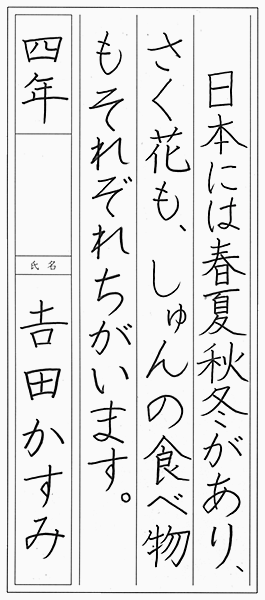 日本には春夏秋冬があり、
さく花も、しゅんの食べ物
もそれぞれちがいます。
四年
氏名
吉田かすみ